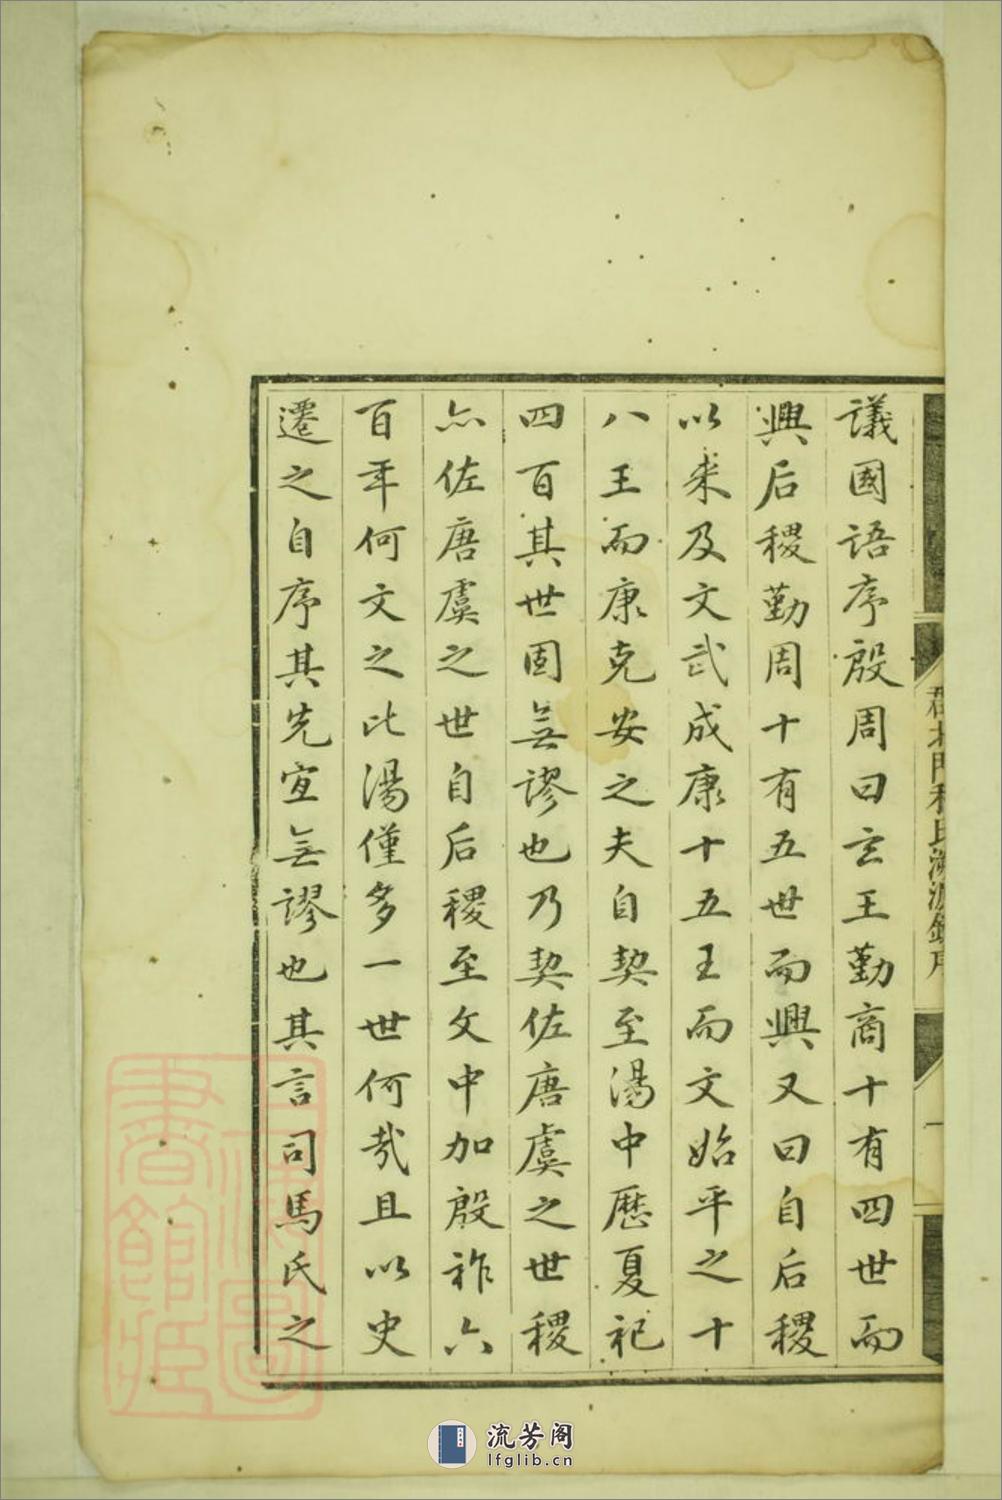 議國語序殷周曰玄王勤商十有四世而
興后稷勤周十有五世而興又曰自后稷
以來及文武成康十五王而文始平之十
八王而康克安之夫自契至湯中歷夏祀
四百其世固無謬也乃契佐唐虞之世稷
亦佐唐虞之世自后稷至文中加殷祚六
百年何文之比湯僅多一世何哉且以史
遷之自序其先宜無謬也其言司馬氏之
北門程氏淵源錄序
一
上海圖書館藏
流芳阁
lfglib.cn